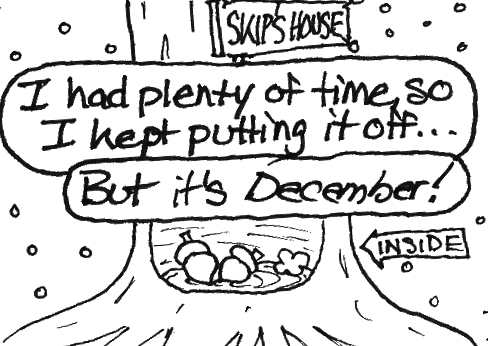 SKIP'S HOUSE
I had plenty of time, so
I kept putting it off...
But it's December!
INSIDE